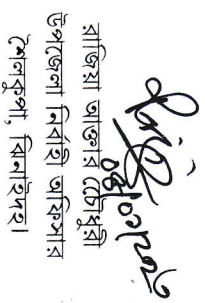 রাজিয়া আক্তার চৌধুরী
উপজেলা নির্বাহী অফিসার
শৈলকুপা, ঝিনাইদহ।